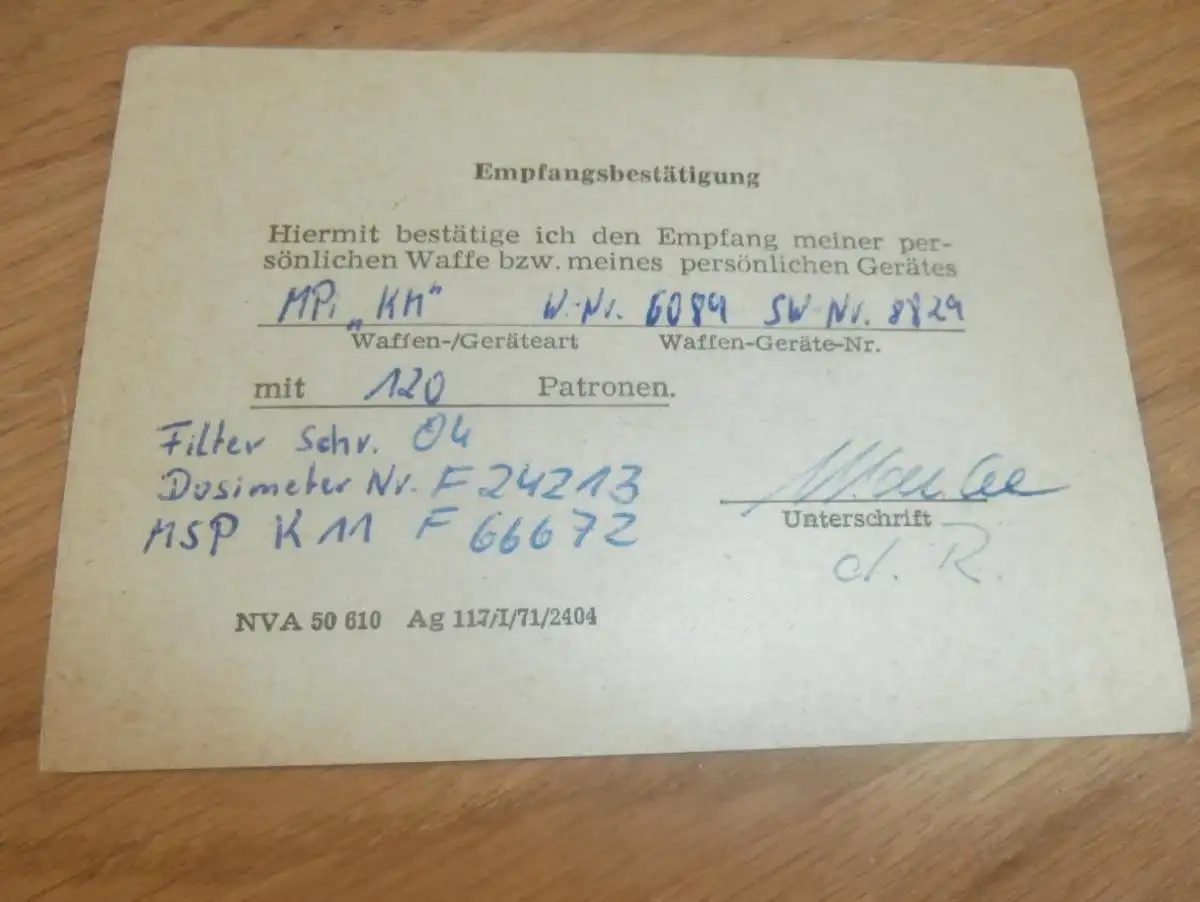 Empfangsbestätigung
Hiermit bestätige ich den Empfang meiner per-
sönlichen Waffe bzw. meines persönlichen Gerätes
MPi „KM“ W.-Nr. 6089 SW-Nr. 8829
Waffen-/Geräteart Waffen-Geräte-Nr.
mit 120 Patronen.
Filter Schr. 04
Dosimeter Nr. F 24213
MSP K 11 F 66672
Unterschrift
d. R.
NVA 50 610 Ag 117/I/71/2404